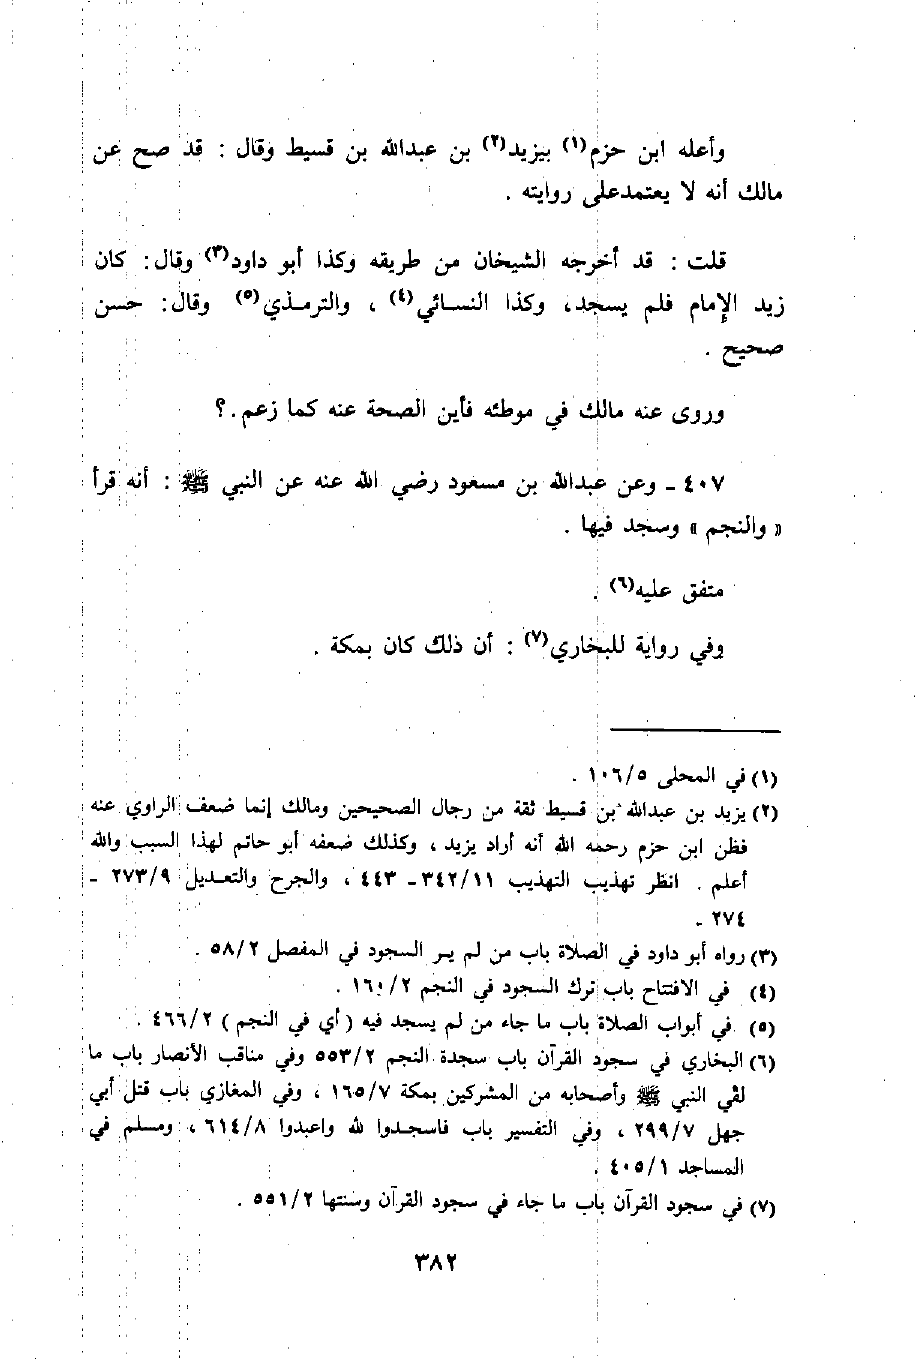 وأعله ابن حزم(١) بيزيد(٢) بن عبدالله بن قسيط وقال : قد صح عن
مالك أنه لا يعتمدعلى روايته .
قلت : قد أخرجه الشيخان من طريقه وكذا أبو داود(٣) وقال: كان
زيد الإمام فلم يسجد، وكذا النسائي(٤) ، والترمذي(٥) وقال: حسن
صحيح .
وروى عنه مالك في موطئه فأين الصحة عنه كما زعم.؟
٤٠٧ ـ وعن عبدالله بن مسعود رضي الله عنه عن النبي ﷺ : أنه قرأ
« والنجم » وسجد فيها .
متفق عليه(٦) .
وفي رواية للبخاري(٧) : أن ذلك كان بمكة .
(١) في المحلى ١٠٦/٥ .
(٢) يزيد بن عبدالله بن قسيط ثقة من رجال الصحيحين ومالك إنما ضعف الراوي عنه
فظن ابن حزم رحمه الله أنه أراد يزيد ، وكذلك ضعفه أبو حاتم لهذا السبب والله
أعلم . انظر تهذيب التهذيب ٣٤٢/١١ ـ ٤٤٣ ، والجرح والتعديل ٢٧٣/٩ ـ
٢٧٤ .
(٣) رواه أبو داود في الصلاة باب من لم يـر السجود في المفصل ٥٨/٢ .
(٤) في الافتتاح باب ترك السجود في النجم ١٦٠/٢ .
(٥) في أبواب الصلاة باب ما جاء من لم يسجد فيه ( أي في النجم ) ٤٦٦/٢ .
(٦) البخاري في سجود القرآن باب سجدة النجم ٥٥٣/٢ وفي مناقب الأنصار باب ما
لقي النبي ﷺ وأصحابه من المشركين بمكة ١٦٥/٧ ، وفي المغازي باب قتل أبي
جهل ٢٩٩/٧ ، وفي التفسير باب فاسجدوا لله واعبدوا ٦١٤/٨ ، ومسلم في
المساجد ٤٠٥/١ .
(٧) في سجود القرآن باب ما جاء في سجود القرآن وسنتها ٥٥١/٢ .
٣٨٢